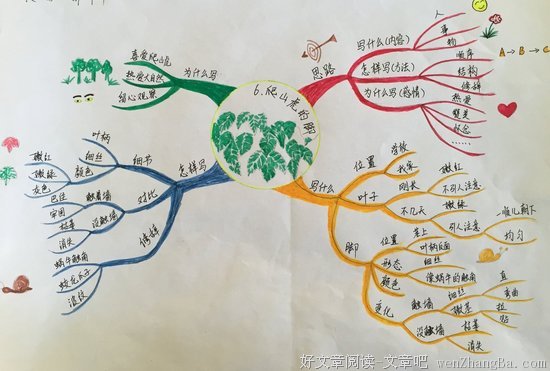 6.爬山虎的脚
为什么写
喜爱爬山虎
热爱大自然
细心观察
思路
写什么(内容)
人
事
物
怎样写(方法)
顺序
结构
修辞
为什么写(感情)
热爱
赞美
怀念
……
A→B→C
怎样写
细节
叶柄
细丝
颜色
嫩红
嫩绿
灰色
对比
触着墙
巴住
牢固
没触墙
枯萎
消失
修辞
蜗牛触角
蛟龙爪子
波纹
写什么
位置
墙
我家
叶子
刚长
嫩红
不引人注意
不几天
嫩绿
引人注意
一顺儿朝下
均匀
脚
位置
茎上
叶柄反面
形态
细丝
像蜗牛的触角
颜色
变化
触墙
细丝
直
弯曲
嫩茎
拉
贴
没触墙
枯萎
消失
好文章阅读-文章吧 wenZhangBa.com